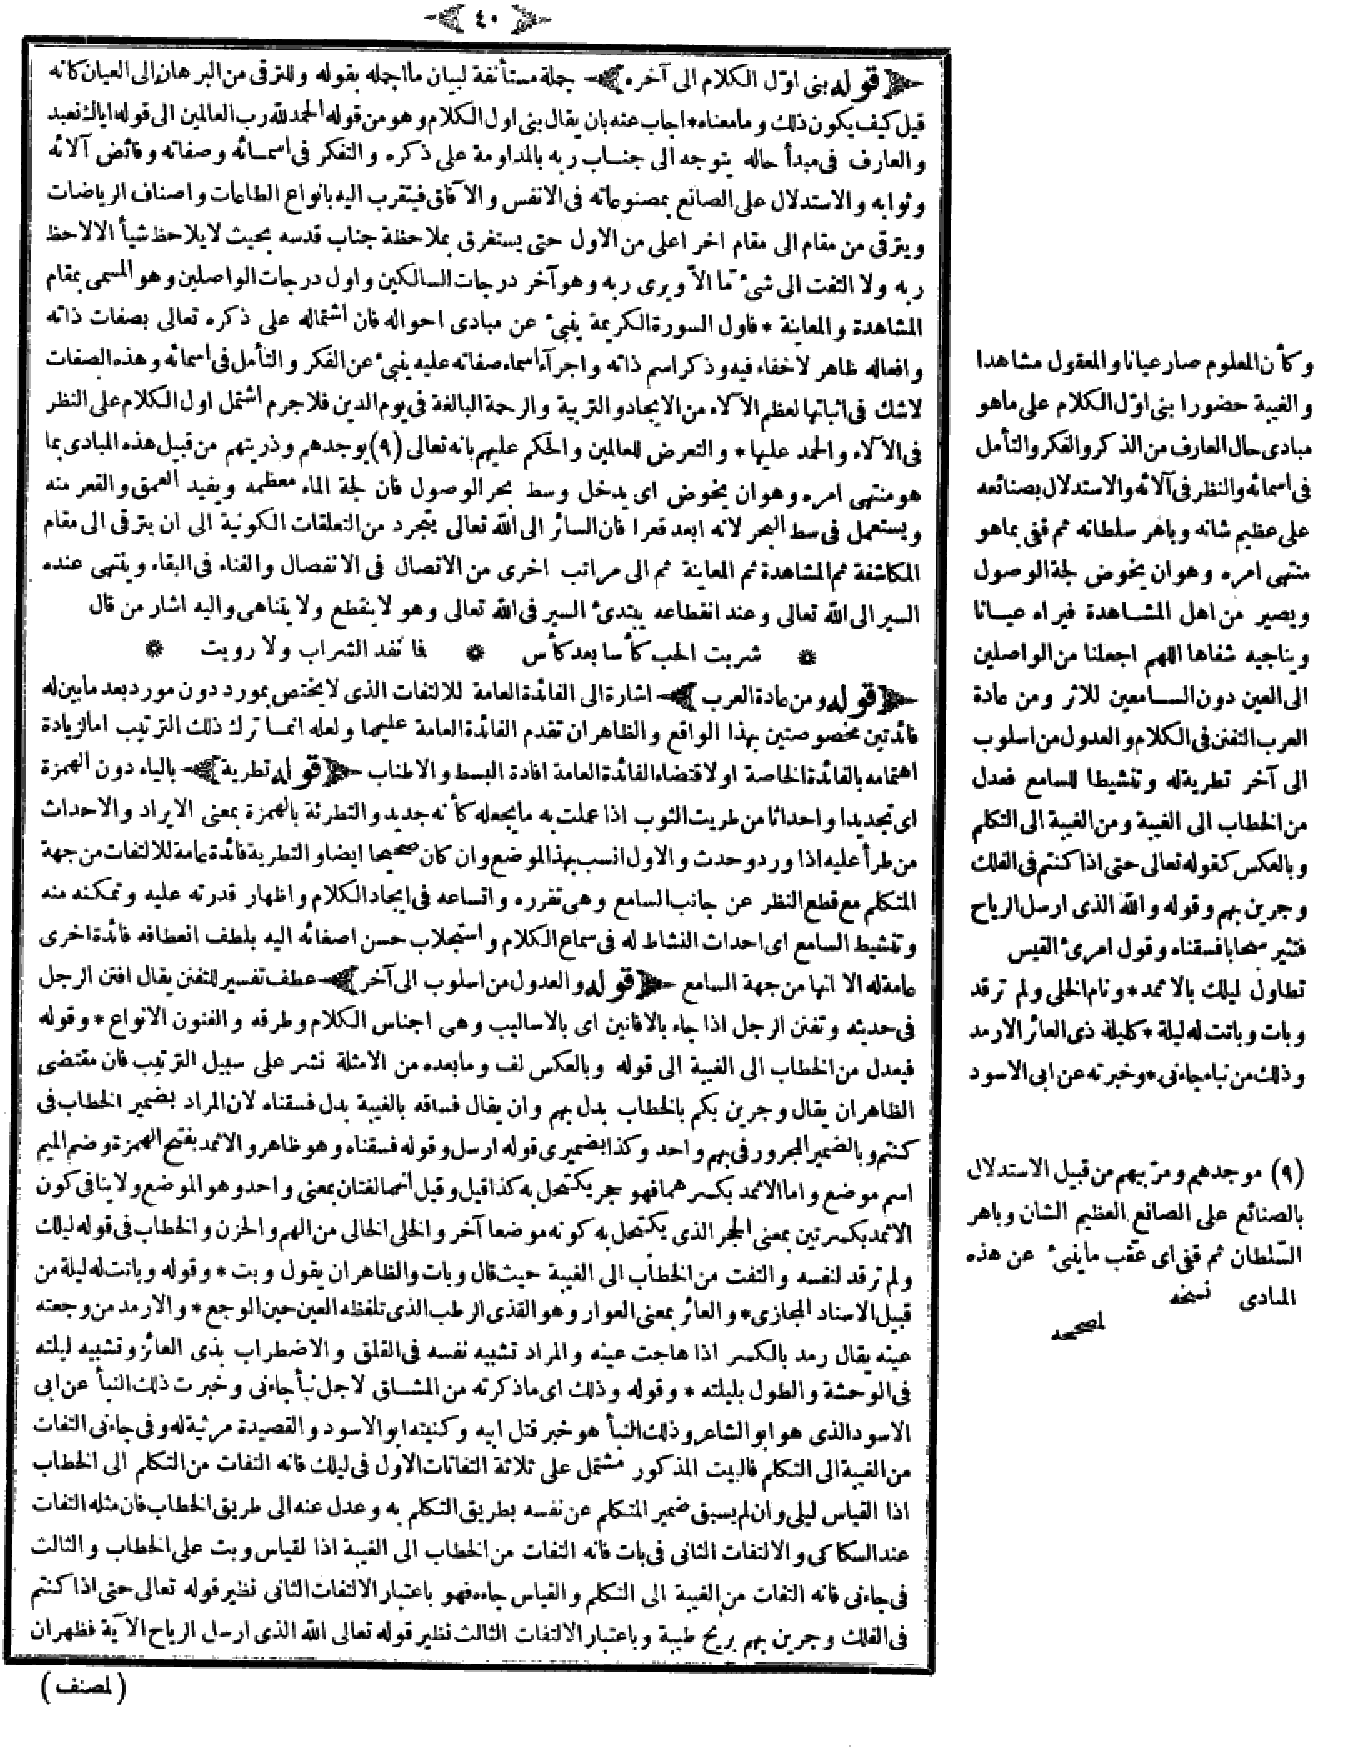 ٤٠
قوله بنى اوّل الكلام الى آخره جملة مستأنفة لبيان ما اجمله بقوله وللترقى من البرهان الى العيان كانه
قيل كيف يكون ذلك وما معناه * اجاب عنه بان يقال بنى اول الكلام وهو من قوله الحمد لله رب العالمين الى قوله اياك نعبد
والعارف فى مبدأ حاله يتوجه الى جناب ربه بالمداومة على ذكره والتفكر فى اسمائه وصفاته وفائض آلائه
وثوابه والاستدلال على الصانع بمصنوعاته فى الانفس والآفاق فيتقرب اليه بانواع الطاعات واصناف الرياضات
ويترقى من مقام الى مقام اخر اعلى من الاول حتى يستغرق بملاحظة جناب قدسه بحيث لا يلاحظ شيأ الا لاحظ
ربه ولا التفت الى شىء ما الاّ ويرى ربه وهو آخر درجات السالكين واول درجات الواصلين وهو المسمى بمقام
المشاهدة والمعاينة * فاول السورة الكريمة ينبئ عن مبادى احواله فان اشتماله على ذكره تعالى بصفات ذاته
وافعاله ظاهر لاخفاء فيه وذكر اسم ذاته واجرآء اسماء صفاته عليه ينبئ عن الفكر والتأمل فى اسمائه وهذه الصفات
لاشك فى اثباتها لعظم الآلاء من الايجاد والتربية والرحمة البالغة فى يوم الدين فلاجرم اشتمل اول الكلام على النظر
فى الآلاء والحمد عليها * والتعرض للعالمين والحكم عليهم بانه تعالى (٩) يوجدهم وذريتهم من قبيل هذه المبادى بما
هو منتهى امره وهو ان يخوض اى يدخل وسط بحر الوصول فان لجة الماء معظمه ويفيد العمق والقعر منه
ويستعمل فى سط البحر لانه ابعد قعرا فان السائر الى الله تعالى يتجرد من التعلقات الكونية الى ان يترقى الى مقام
المكاشفة ثم المشاهدة ثم المعاينة ثم الى مراتب اخرى من الاتصال فى الانفصال والفناء فى البقاء وينتهى عنده
السير الى الله تعالى وعند انقطاعه يبتدئ السير فى الله تعالى وهو لا ينقطع ولا يتناهى واليه اشار من قال
* شربت الحب كأسا بعد كأس * فا نفد الشراب ولا رويت *
قوله ومن عادة العرب اشارة الى الفائدة العامة للالتفات الذى لا يختص بمورد دون مورد بعد ما بين له
فائدتين مخصوصتين بهذا الواقع والظاهر ان تقدم الفائدة العامة عليهما ولعله انما ترك ذلك الترتيب اما لزيادة
اهتمامه بالفائدة الخاصة او لاقتضاء الفائدة العامة افادة البسط والاطناب قوله تطرية بالياء دون الهمزة
اى تجديدا واحداثا من طريت الثوب اذا عملت به ما يجعله كأنه جديد والتطرئة بالهمزة بمعنى الايراد والاحداث
من طرأ عليه اذا ورد وحدث والاول انسب بهذا الموضع وان كان صحيحا ايضا والتطرية فائدة عامة للالتفات من جهة
المتكلم مع قطع النظر عن جانب السامع وهى تفرره واتساعه فى ايجاد الكلام واظهار قدرته عليه وتمكنه منه
وتنشيط السامع اى احداث النشاط له فى سماع الكلام واستجلاب حسن اصغائه اليه بلطف انعطافه فائدة اخرى
عامة له الا انها من جهة السامع قوله والعدول من اسلوب الى آخر عطف تفسير للتفنن يقال افتن الرجل
فى حديثه وتفنن الرجل اذا جاء بالافانين اى بالاساليب وهى اجناس الكلام وطرقه والفنون الانواع * وقوله
فيعدل من الخطاب الى الغيبة الى قوله وبالعكس لف ومابعده من الامثلة نشر على سبيل الترتيب فان مقتضى
الظاهر ان يقال وجرين بكم بالخطاب بدل بهم وان يقال فساقه بالغيبة بدل فسقناه لان المراد بضمير الخطاب فى
كنتم وبالضمير المجرور فى بهم واحد وكذا بضميرى قوله ارسل وقوله فسقناه وهو ظاهر والاثمد بفتح الهمزة وضم الميم
اسم موضع واما الاثمد بكسرهما فهو حجر يكتحل به كذا قيل وقيل انهما لغتان بمعنى واحد وهو الموضع ولا ينافى كون
الاثمد بكسرتين بمعنى الحجر الذى يكتحل به كونه موضعا آخر والخلى الخالى من الهم والحزن والخطاب فى قوله ليلك
ولم ترقد لنفسه والتفت من الخطاب الى الغيبة حيث قال وبات والظاهر ان يقول وبت * وقوله وباتت له ليلة من
قبيل الاسناد المجازى * والعائر بمعنى العوار وهو القذى الرطب الذى تلفظه العين حين الوجع * والارمد من وجعته
عينه يقال رمد بالكسر اذا هاجت عينه والمراد تشبيه نفسه فى القلق والاضطراب بذى العائر وتشبيه ليلته
فى الوحشة والطول بليلته * وقوله وذلك اى ماذكرته من المشاق لاجل نبأ جاءنى وخبرت ذلك النبأ عن ابى
الاسود الذى هو ابو الشاعر وذلك النبأ هو خبر قتل ابيه وكنيته ابو الاسود والقصيدة مرثية له وفى جاءنى التفات
من الغيبة الى التكلم فالبيت المذكور مشتمل على ثلاثة التفاتات الاول فى ليلك فانه التفات من التكلم الى الخطاب
اذا القياس ليلى وان لم يسبق ضمير المتكلم عن نفسه بطريق التكلم به وعدل عنه الى طريق الخطاب فان مثله التفات
عند السكاكى والالتفات الثانى فى بات فانه التفات من الخطاب الى الغيبة اذا لقياس وبت على الخطاب والثالث
فى جاءنى فانه التفات من الغيبة الى التكلم والقياس جاءه فهو باعتبار الالتفات الثانى نظير قوله تعالى حتى اذا كنتم
فى الفلك وجرين بهم بريح طيبة وباعتبار الالتفات الثالث نظير قوله تعالى الله الذى ارسل الرياح الآية فظهر ان
(لمصنف)
وكأن المعلوم صار عيانا والمعقول مشاهدا
والغيبة حضورا بنى اوّل الكلام على ماهو
مبادى حال العارف من الذكر والفكر والتأمل
فى اسمائه والنظر فى آلائه والاستدلال بصنائعه
على عظيم شانه وباهر سلطانه ثم قفى بماهو
منتهى امره وهو ان يخوض لجة الوصول
ويصير من اهل المشاهدة فيراه عيانا
ويناجيه شفاها اللهم اجعلنا من الواصلين
الى العين دون السامعين للاثر ومن عادة
العرب التفنن فى الكلام والعدول من اسلوب
الى آخر تطرية له وتنشيطا للسامع فعدل
من الخطاب الى الغيبة ومن الغيبة الى التكلم
وبالعكس كقوله تعالى حتى اذا كنتم فى الفلك
وجرين بهم وقوله والله الذى ارسل الرياح
فتثير سحابا فسقناه وقول امرئ القيس
تطاول ليلك بالاثمد * ونام الخلى ولم ترقد
وبات وباتت له ليلة * كليلة ذى العائر الارمد
وذلك من نباء جاءنى * وخبرته عن ابى الاسود
(٩) موجدهم ومربيهم من قبيل الاستدلال
بالصنائع على الصانع العظيم الشان وباهر
السّلطان ثم قفى اى عقّب ماينبئ عن هذه
المبادى نسخه
لمصححه